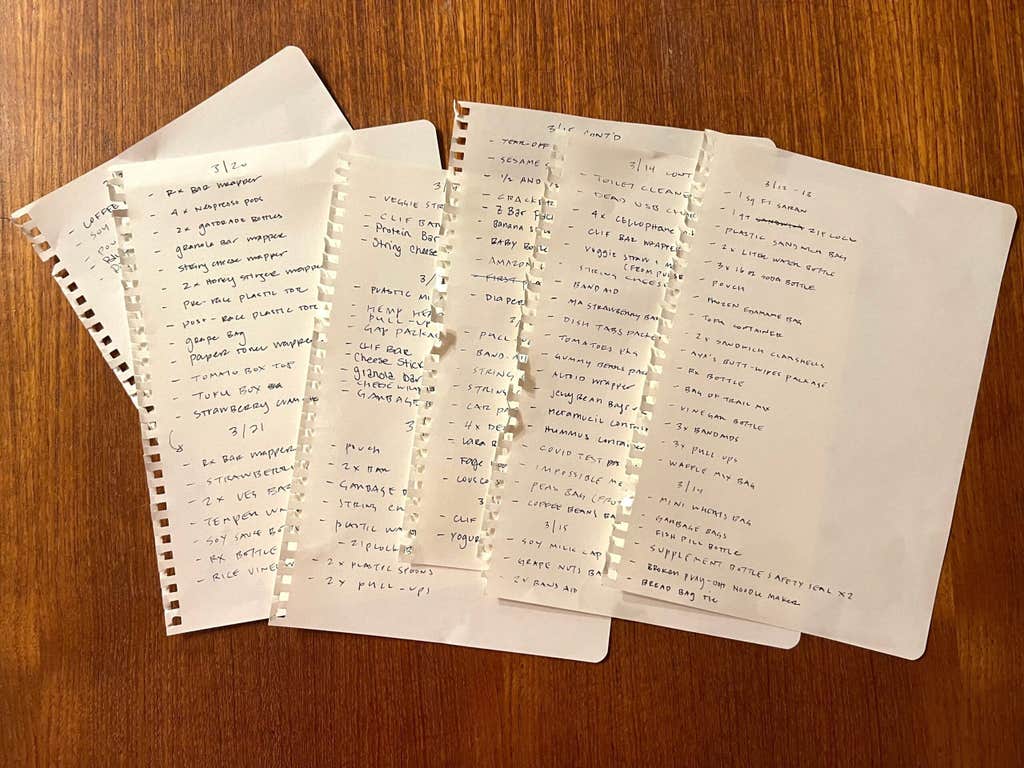 - COFFEE
- SOY
- POU
3/20
- RX BAR WRAPPER
- 4x NESPRESSO PODS
- 2x GATORADE BOTTLES
- granola BAR WRAPPER
- String cheese WRAPPER
- 2x Honey Stinger WRAPPE
- PRE-RACE PLASTIC TOR
- POST-RACE PLASTIC TOTE
- grape BAG
- PAPER TOWEL WRAPPER
- TOMATO BOX TOP
- TOFU BOX
- STRAWBERRY CLAM
3/21
- RX BAR WRAPPER
- STRAWBERR
- 2x VEG BAG
- TEMPEH W
- SOY SAUCE BO
- RX BOTTLE
- RICE VINEG
3/
- VEGGIE STR
- CLIF BAR
- Protein Bar
- String Cheese
3/
- PLASTIC MI
- HEMP HEA
- PULL-UP
- GAP PACKA
- CLIF BAR
- Cheese Stick
- granola bar
- GARBAGE
3
- POUCH
- 2x BAR
- GARBAGE B
- STRING CH
- PLASTIC W
- ZIPLOC
- 2x PLASTIC SPOONS
- 2x PULL-UPS
3/15 CONT'D
- TEAR-OFF
- SESAME S
- 1/2 AND
- CRACKER
- Z Bar
- Banana
- BABY BO
- AMAZON
- FIRST
- Diaper
- PULL-U
- BAND-A
- STRING
- STRING
- CAR
- 4x DE
- LARA B
- FAGE
- COUSCOU
3
- CLIF
- YOGUR
3/14 CONT
- TOILET CLEANE
- DEAD USB CH
- 4x CELLOPHANE
- CLIF BAR WRAPPER
- Veggie STRAW
(FROM
- STRING CHEESE
- BAND AID
- STRAWBERRY BA
- DISH TABS PACKE
- TOMATOES PKG
- GUMMY
- ALTOID WRAPPER
- JellyBean BAGS
- METAMUCIL CONTAI
- HUMMUS CONTAINER
- COVID TEST
- IMPOSSIBLE ME
- PEAS BAG
- COFFEE BEANS BA
3/15
- SOY MILK CAP
- GRAPE NUTS BA
- 2x BAND AID
3/12-13
- 1 SQ FT SARAN
- 1 QT ZIPLOCK
- PLASTIC SANDWICH BAG
- 2x LITER WATER BOTTLE
- 3x 16 OZ SODA BOTTLE
- POUCH
- FROZEN EDAMAME BAG
- TOFU CONTAINER
- 2x SANDWICH CLAMSHELLS
- AVA'S BUTT-WIPES PACKAGE
- RX BOTTLE
- BAG OF TRAIL MIX
- VINEGAR BOTTLE
- 3x BANDAIDS
- 3x PULL UPS
- WAFFLE MIX BAG
3/14
- MINI WHEATS BAG
- GARBAGE BAGS
- FISH PILL BOTTLE
- SUPPLEMENT BOTTLE SAFETY SEAL x2
- BROKEN PLAY-DOH NOODLE MAKER
- BREAD BAG TIE